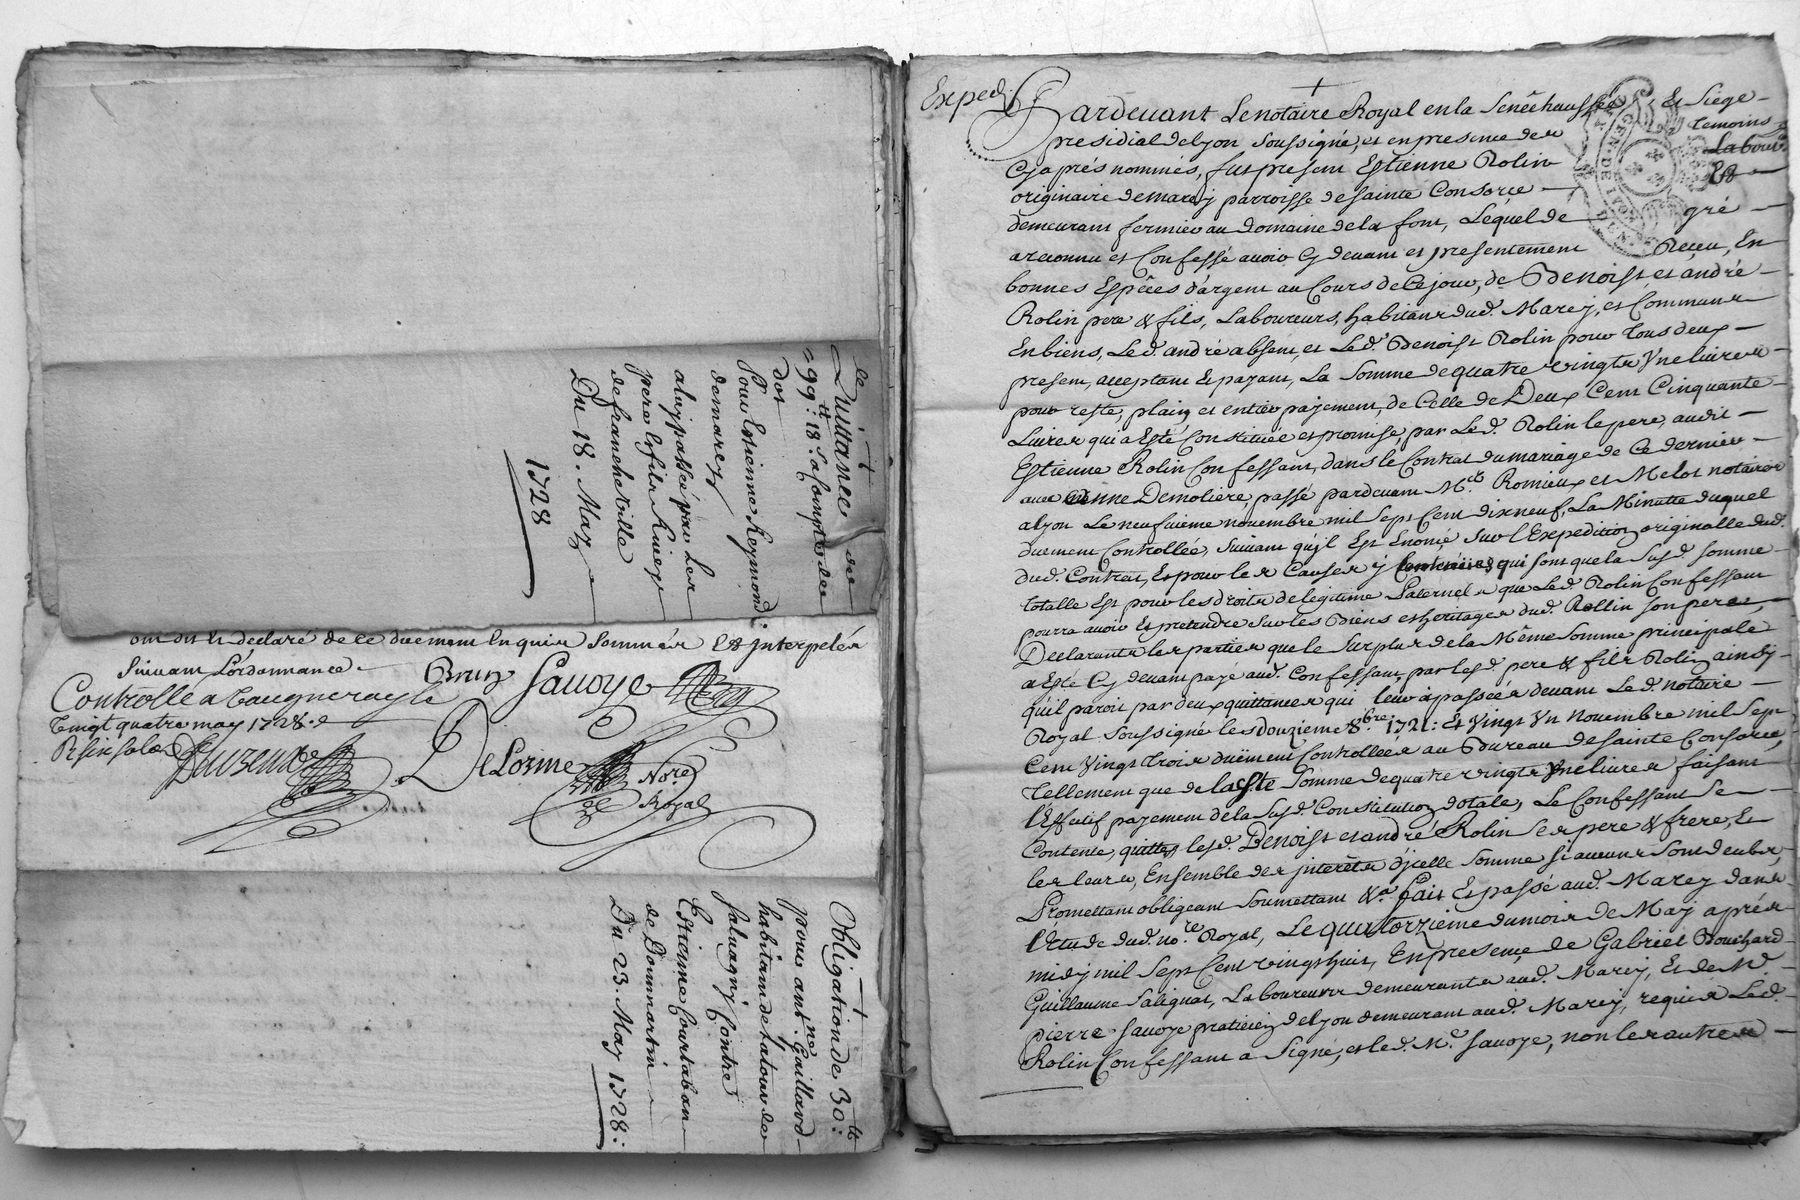 Quittance de
99 tt: 18 s a Compte de
dot
Pour Estienne Reymond
demarey
a luy passée par Les
pere & fils Riviere
de francheville
Du 18. May
1728
ont dit et declaré de ce duement Enquis Sommés Et Interpelés
Suivant L'ordonnance
Brun Savoye
Controllé a Vaugneray le
Vingt quatre may 1728.
DeLorme Nore Royal
Obligation de 30 tt:
pour antne Guillard
habitant de la tour de
Salvagny Contre
Estienne Courtaban
de Dommartin
Du 23 May 1728:
Exped
Pardevant Le notaire Royal en la Senéchaussée Et Siege
presidial de lyon soussigné, et en presence des temoins
Cy aprés nommés, fut present Estienne Rolin Labour.
originaire de marcy parroisse de sainte Consorce
demeurant fermier au domaine de la font, Lequel de gré
a reconnu et Confessé avoir Cy devant et presentement Receu, En
bonnes Espêces d'argent au Cours de Ce jour, de Benoist et andré
Rolin pere & fils, Laboureurs, habitans dud. Marcy, et Communs
En biens, Led. andré absent, et Led. Benoist Rolin pour tous deux
present, acceptant Et payant, La Somme de quatre vingts Une livres
pour reste, plain et entier payement, de Celle de Deux Cent Cinquante
Livres qui a Esté Constituée et promise, par Led. Rolin le pere, audit
Estienne Rolin Confessant, dans le Contrat du mariage de Ce dernier
avec anne Demoliere, passé pardevant Mes. Romieux et Melot notaires
a lyon Le neufvieme novembre mil Sept Cent dix neuf, La Minutte duquel
duement Controllée, Suivant qu'jl Est Enoncé Sur l'Expedition originalle dud.
dud. Contrat, Et pour les Causes y Contenües qui sont que la Susd. Somme
totalle Est pour les droits de legitime Paternels que Led. Rolin Confessant
pourra avoir Et pretendre sur les Biens et heritages dud. Rollin son pere,
Declarants les parties que le Surplus de la Même Somme principale
a Esté Cy devant payé aud. Confessant, par lesd. pere & fils Rolin ainsy
qu'il paroit par deux quittances qui leur a passée a devant Led. notaire
Royal Soussigné les douzieme 8bre. 1721: Et Vingt Un Novembre mil Sept
Cent Vingt trois duëment Controllées au Bureau de Sainte Consorce,
Tellement que de la Ste Somme de quatre vingts Une livres faisant
l'Effectif payement de la Susd. Constitution dotale, Le Confessant Se
Contente, quitte lesd. Benoist et andré Rolin Ses pere & frere, Et
les leurs, Ensemble des jnterêts d'jcelle Somme Si aucuns Sont deubs,
Promettant obligeant Soumettant &a. Fait Et passé aud. Marcy dans
l'Etude dud. nore. Royal, Le quatorzieme du mois de May aprés
midy mil Sept Cent vingt huit, En presence de Gabriel Bouchard
Guillaume Salignat, Laboureurs demeurants aud. Marcy, Et de Me.
pierre Savoye praticien de lyon demeurant aud. Marcy, requis Led.
Rolin Confessant a Signé, et led. Me. Savoye, non les autres